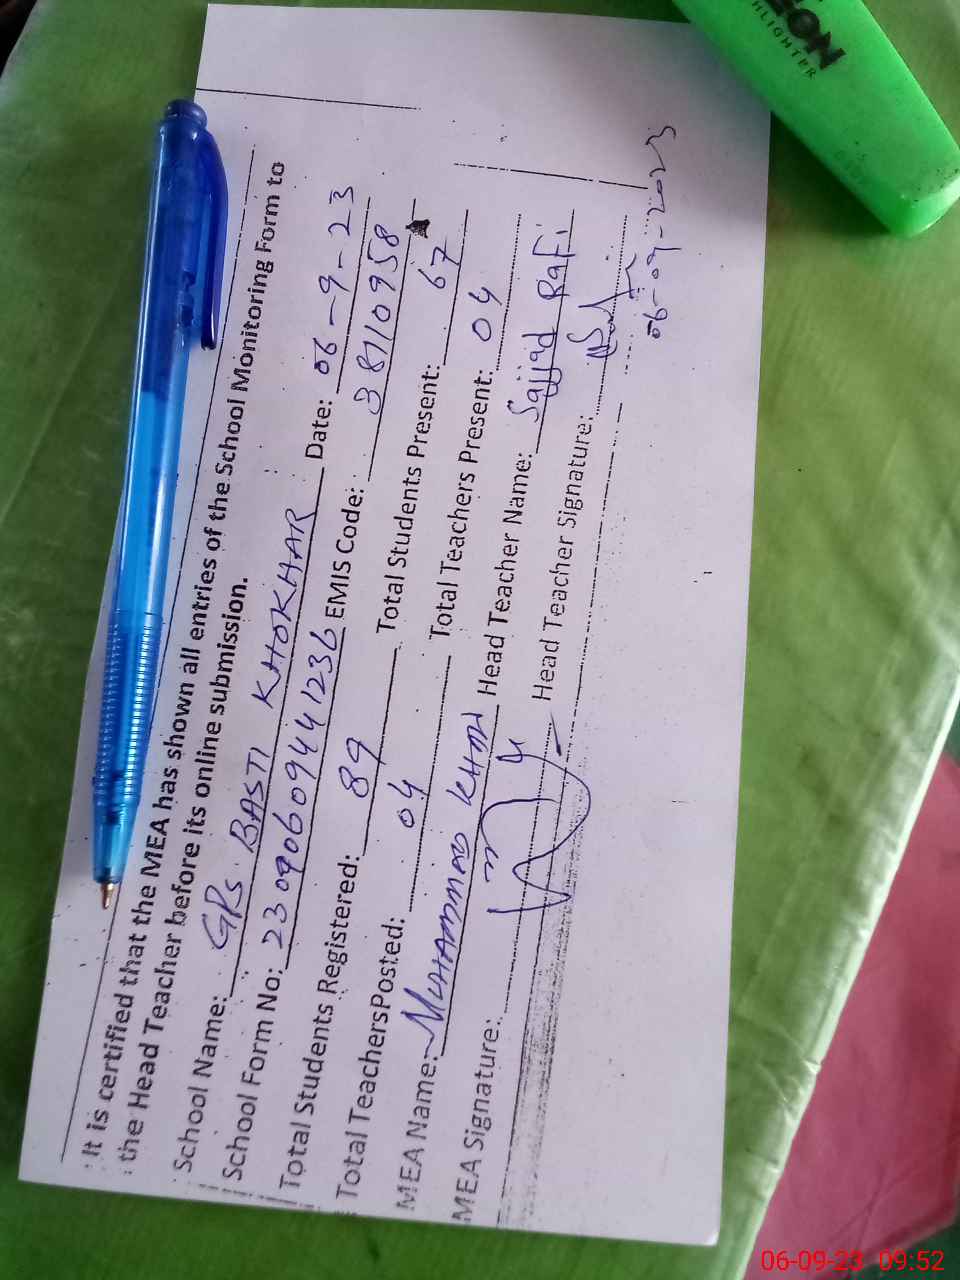 It is certified that the MEA has shown all entries of the School Monitoring Form to
the Head Teacher before its online submission.
School Name: GPS BASTI KHOKHAR Date: 06-9-23
School Form No: 2309060944 1236 EMIS Code: 38110958
Total Students Registered: 89 Total Students Present: 67
Total TeachersPosted: 04 Total Teachers Present: 04
MEA Name: MUHAMMAD KHAN Head Teacher Name: Sajjad Rafi
MEA Signature: Head Teacher Signature:
06-09-2023
EON
HLIGHTER
06-09-23 09:52